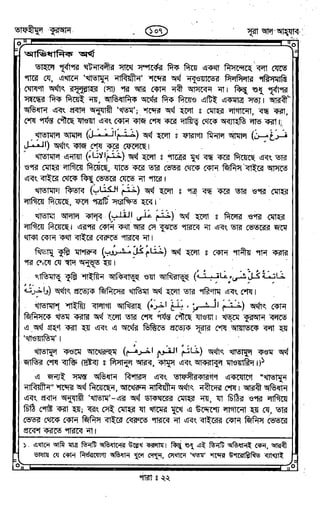 তাফহীমুল কুরআন
১০৭
সূরা আল আহযাব
আভিধানিক অর্থ
তাহলে পূর্বাপর ঘটনাবলীর সাথে সম্পর্কের দিক দিয়ে একথা নিঃসন্দেহে বলা যেতে
পারে যে, এখানে 'খাতামুন নাবিয়্যীন' শব্দের অর্থ নবুওয়াতের সিলসিলার পরিসমাপ্তি
ঘোষণা অর্থাৎ রসূলুল্লাহর (সা) পর আর কোন নবী আসবেন না। কিন্তু শুধু পূর্বাপর
সম্বন্ধের দিক দিয়েই নয়, আভিধানিক অর্থের দিক দিয়েও এটিই একমাত্র সত্য। আরবী
অভিধান এবং প্রবাদ অনুযায়ী 'খতম' শব্দের অর্থ হলো : মোহর লাগানো, বন্ধ করা,
শেষ পর্যন্ত পৌঁছে যাওয়া এবং কোন কাজ শেষ করে দায়িত্ব থেকে অব্যাহতি লাভ করা।
খাতামাল আমাল (خَتَمَ الْعَمَلَ) অর্থ হলো : ফারাগা মিনাল আমাল (فَرَغَ مِنَ
الْعَمَلِ) অর্থাৎ কাজ শেষ করে ফেলেছে।
খাতামাল এনায়া (خَتَمَ الْاِنَاءَ) অর্থ হলো : পাত্রের মুখ বন্ধ করে দিয়েছে এবং তার
ওপর মোহর লাগিয়ে দিয়েছে, যাতে করে তার ভেতর থেকে কোন জিনিস বাইরে আসতে
এবং বাইরে থেকে কিছু ভেতরে যেতে না পারে।
খাতামাল কিতাব (خَتَمَ الْكِتَابَ) অর্থ হলো : পত্র বন্ধ করে তার ওপর মোহর
লাগিয়ে দিয়েছে, ফলে পত্রটি সংরক্ষিত হবে।
খাতামা আলাল কাল্‌ব (خَتَمَ عَلَى الْقَلْبِ) অর্থ হলো : দিলের ওপর মোহর
লাগিয়ে দিয়েছে। এরপর কোন কথা আর সে বুঝতে পারবে না এবং তার ভেতরের জমে
থাকা কোন কথা বাইরে বেরুতে পারবে না।
খিতামু কুল্লি মাশরুব (خِتَامُ كُلِّ مَشْرُوْبٍ) অর্থ হলো : কোন পানীয় পান করার
পর শেষে যে স্বাদ অনুভূত হয়।
খাতিমাতু কুল্লি শাইয়িন আকিবাতুহু ওয়া আখিরাতুহু (خَاتِمَةُ كُلِّ شَيْءٍ عَاقِبَتُهُ
وَاٰخِرَتُهُ) অর্থাৎ প্রত্যেক জিনিসের খাতিমা অর্থ হলো তার পরিণাম এবং শেষ।
খাতামাশ শাইয়ি বালাগা আখিরাহু (خَتَمَ الشَّيْءَ بَلَغَ اٰخِرَهُ) অর্থাৎ কোন
জিনিসকে খতম করার অর্থ হলো তার শেষ পর্যন্ত পৌঁছে যাওয়া। খতমে কুরআন বলতে
এ অর্থ গ্রহণ করা হয় এবং এ অর্থের ভিত্তিতে প্রত্যেক সূরার শেষ আয়াতকে বলা হয়
'খাওয়াতিম'।
খাতামুল কওমে আখেরুহুম (خَاتَمُ الْقَوْمِ اٰخِرُهُمْ) অর্থাৎ খাতামুল কওম অর্থ
জাতির শেষ ব্যক্তি (দ্রষ্টব্য : লিসানুল আরব, কামুস এবং আকরাবুল মাওয়ারিদ।)১
এ জন্যই সমস্ত অভিধান বিশারদ এবং তাফসীরকারগণ একযোগে 'খাতামুন
নাবিয়্যীন' শব্দের অর্থ নিয়েছেন, আখেরুন নাবিয়্যীন অর্থাৎ নবীদের শেষ। আরবী অভিধান
এবং প্রবাদ অনুযায়ী 'খাতাম'-এর অর্থ ডাকঘরের মোহর নয়, যা চিঠির ওপর লাগিয়ে
চিঠি পোস্ট করা হয়; বরং সেই মোহর যা খামের মুখে এ উদ্দেশ্যে লাগানো হয় যে, তার
ভেতর থেকে কোন জিনিস বাইরে বেরুতে পারবে না এবং বাইরের কোন জিনিস ভেতরে
প্রবেশ করতে পারবে না।
১. এখানে আমি মাত্র তিনটি অভিধানের উল্লেখ করলাম। কিন্তু শুধু এই তিনটি অভিধানই কেন, আরবী
ভাষায় যে কোন নির্ভরযোগ্য অভিধান খুলে দেখুন, সেখানে 'খতম' শব্দের উপরোল্লিখিত ব্যাখ্যাই
পারা : ২২